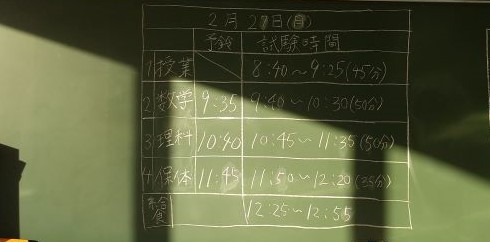 2月27日(月)
予鈴 試験時間
1 授業 8:40〜9:25(45分)
2 数学 9:35 9:40〜10:30(50分)
3 理科 10:40 10:45〜11:35(50分)
4 保体 11:45 11:50〜12:20(25分)
給食 12:25〜12:55